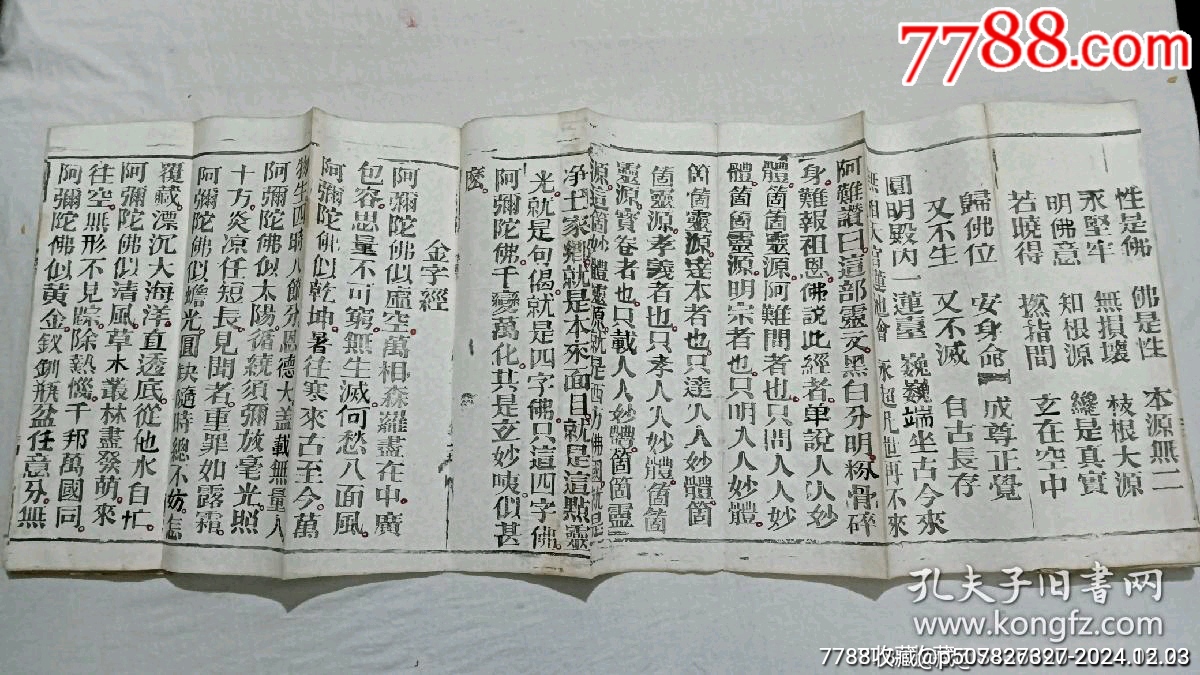 性是佛　佛是性　本源無二
永堅牢　無損壞　枝根大源
明佛意　知根源　纔是真實
若曉得　撚指間　玄在空中
歸佛位　安身命　成尊正覺
又不生　又不滅　自古長存
圓明殿內一蓮臺　巍巍端坐古今來
永超凡世再不來
阿難讚曰這部靈文黑白分明粉骨碎
身難報祖恩佛說此經者單說人人妙
體箇箇靈源阿難問者也只問人人妙
體箇箇靈源明宗者也只明人人妙體
箇箇靈源達本者也只達人人妙體箇
箇靈源孝義者也只孝人人妙體箇箇
靈源寶卷者也只載人人妙體箇箇靈
源這箇妙體靈源就是西方佛國就是
净土家鄉就是本來面目就是這點靈
光就是句偈就是四字佛只這四字佛
阿彌陀佛千變萬化其是玄妙咦似甚
麼
金字經
阿彌陀佛似虛空萬相森羅盡在中廣
包容思量不可窮無生滅何愁八面風
阿彌陀佛似乾坤暑往寒來古至今萬
物生四時八節分恩德大蓋載無量人
阿彌陀佛似太陽循繞須彌放毫光照
十方炎凉任短長見聞者重罪如露霜
阿彌陀佛似蟾光圓缺隨時總不妨怎
覆藏漂沉大海洋直透底從他水自忙
阿彌陀佛似清風草木叢林盡發萌來
往空無形不見踪除熱惱千邦萬國同
阿彌陀佛似黄金釵釧瓶盆任意分無
7788.com
孔夫子旧书网
www.kongfz.com
7788收藏@p507827327-2024.12.03